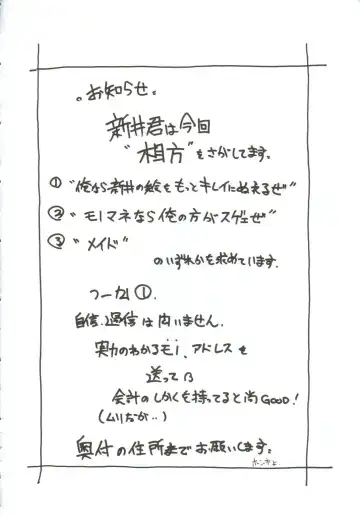 。お知らせ。
新井君は今回
"相方"をさがしてます。
① "俺なら新井の絵をもっとキレイにぬえるぜ"
② "モノマネなら俺の方がスゲェぜ"
③ "メイド"
のいずれかを求めています。
つーか①。
自信・過信は問いません。
実力のわかるモノ、アドレスを
送ってね
会計のしかくを持ってると尚GOOD!
(ムリだが‥)
奥付の住所までお願いします。
ホンキよ